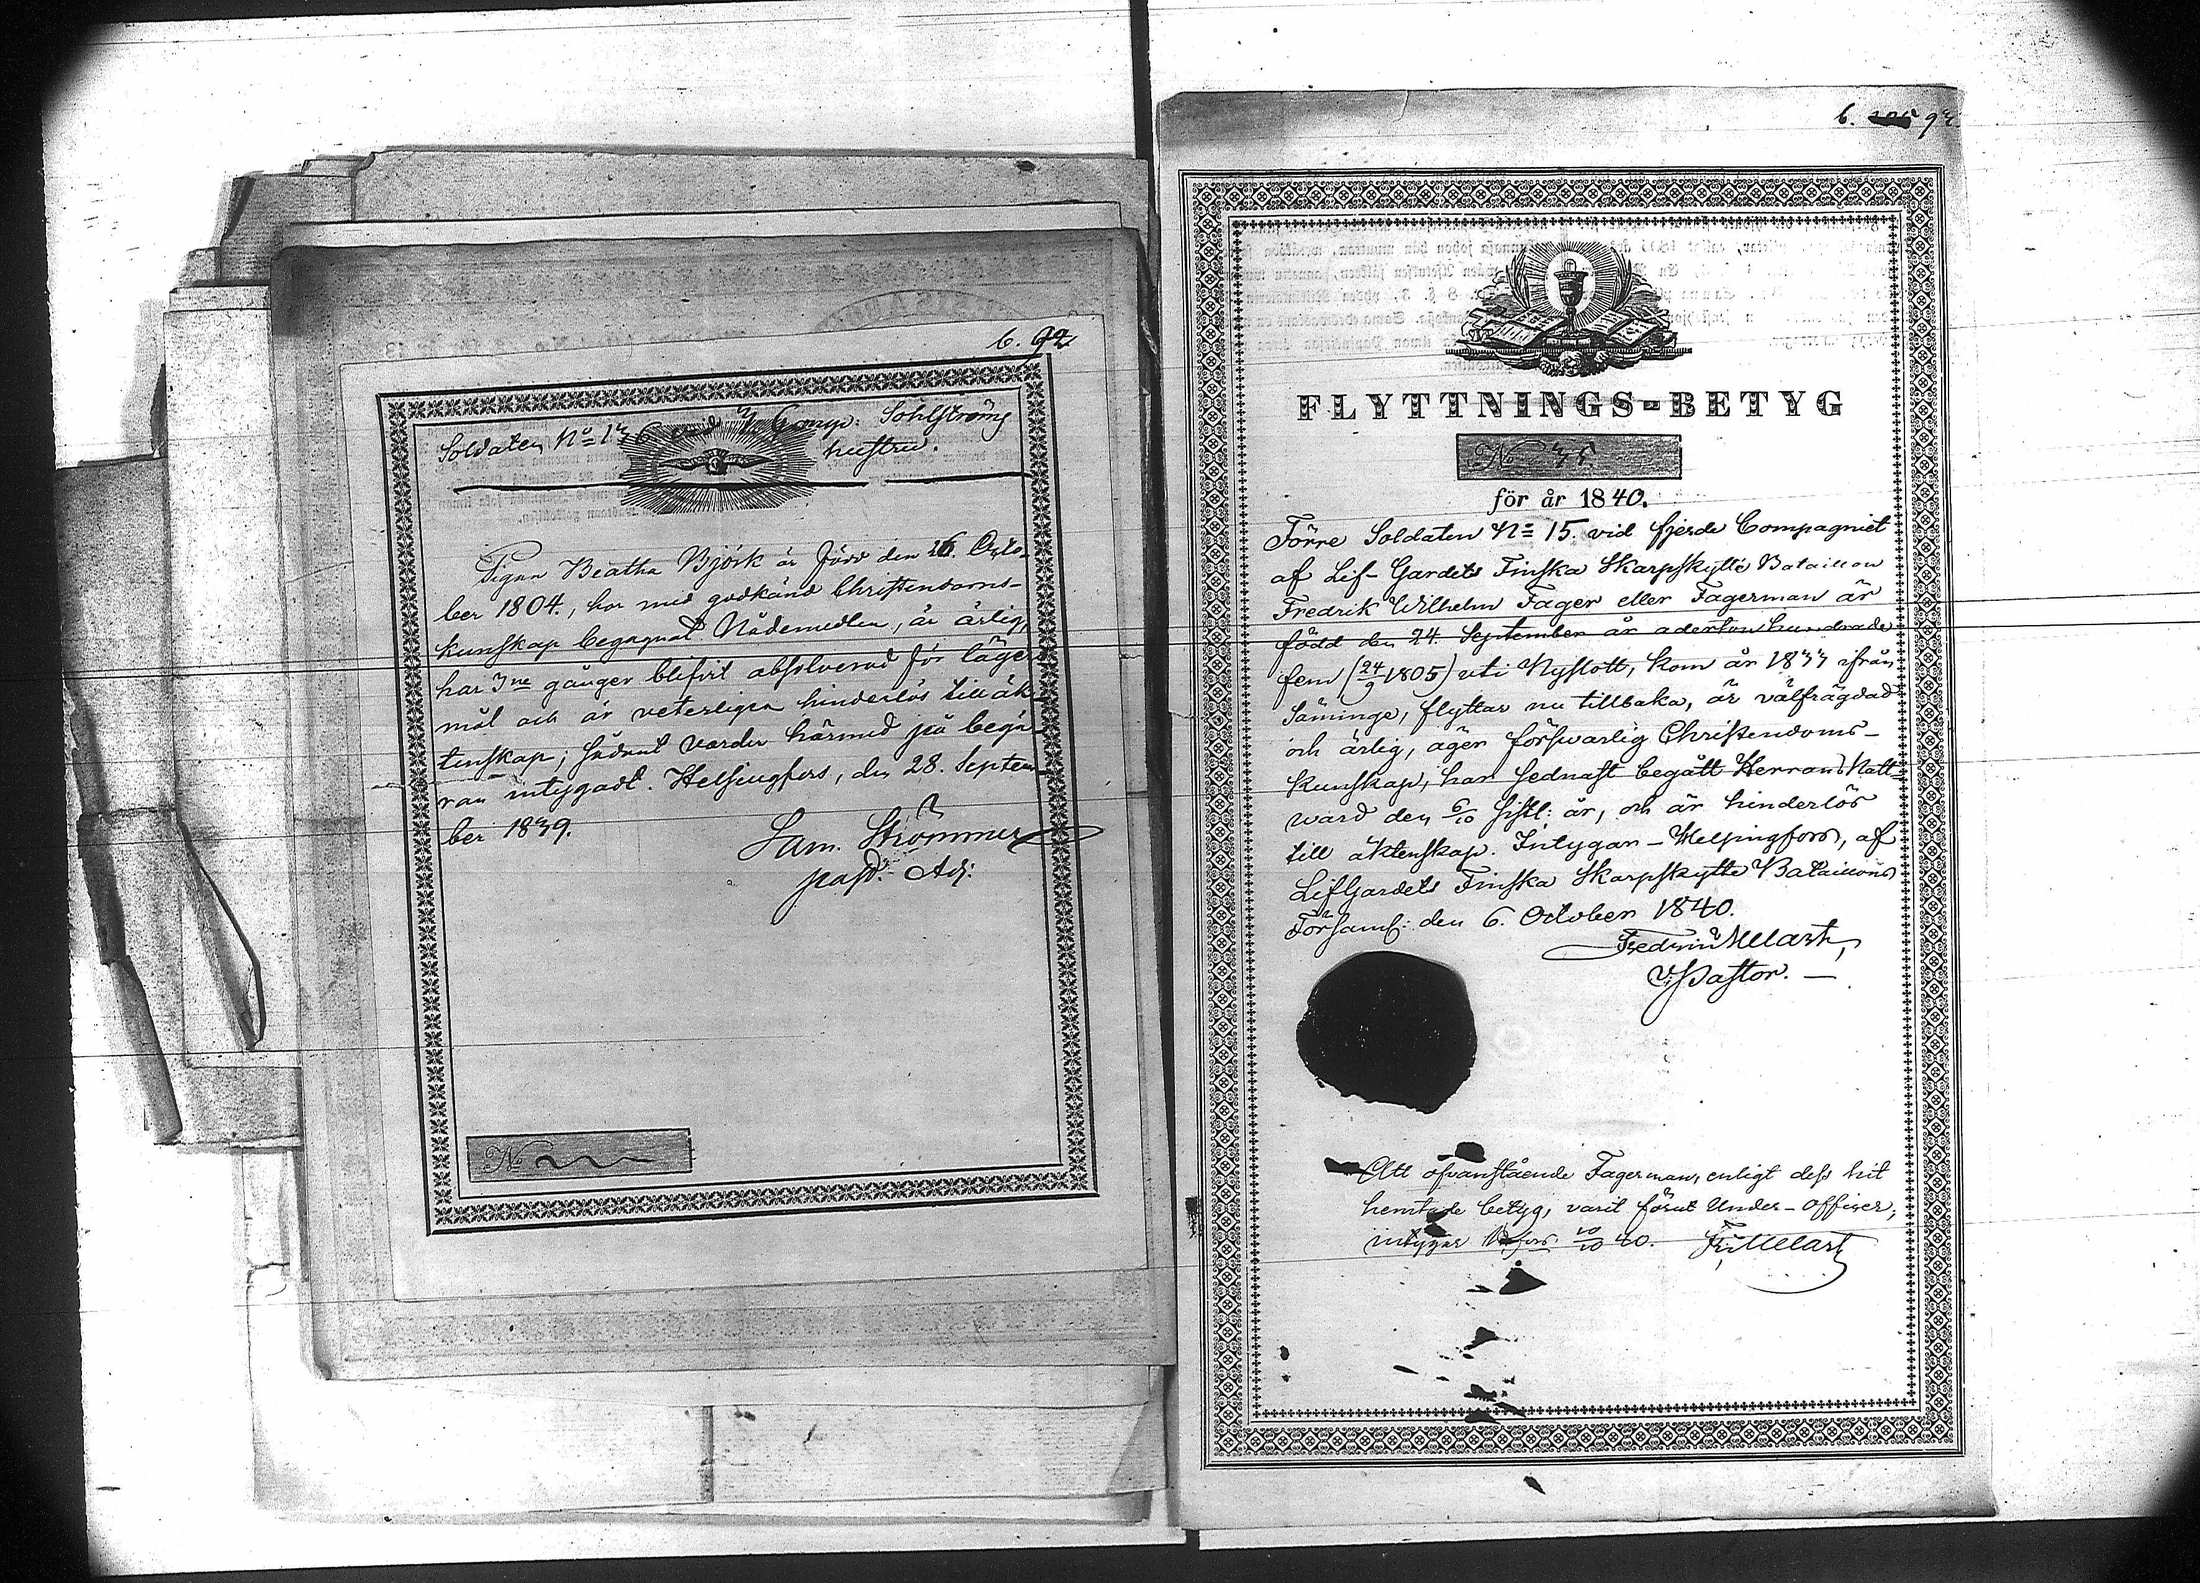 b. 92
Soldaten No 136 vid Comp: Sohlströms
hustru.
Pigan Beatha Björk är född den 26. Octo-
ber 1804., har med godkänd Christendoms-
kunskap begagnat Nådemedlen, är ärlig,
har 3ne gånger blifvit absolverad för läger
mål och är veterligen hinderlös till äk
tenskap; hvadant varder härmed på begä-
ran intygadt. Helsingfors, den 28. Septem-
ber 1839.
Sam. Strömmer
past. Adj:
No
b. 93
FLYTTNINGS-BETYG
No 35
för år 1840.
Förre Soldaten No 15. vid fjerde Compagniet
af Lif-Gardets Finska Skarpskytte Bataillon
Fredrik Wilhelm Fager eller Fagerman är
född den 24 September år adertonhundrade
fem (24/9 1805) uti Nyslott, kom år 1833 ifrån
Säminge, flyttar nu tillbaka, är välfrägdad
och ärlig, äger försvarlig Christendoms-
kunskap, har sednast begått Herrans Natt-
ward den 6/10 sistl: år, och är hinderlös
till äktenskap. Intygar - Helsingfors, af
LifGardets Finska Skarpskytte Bataillons
Församl: den 6. October 1840.
Fredrik Melart,
V. Pastor.
Att ofvanstående Fagerman, enligt dess hit
hemtade betyg, varit förut Under-officer,
intygar H:fors 10/10 40. Fr. Melart